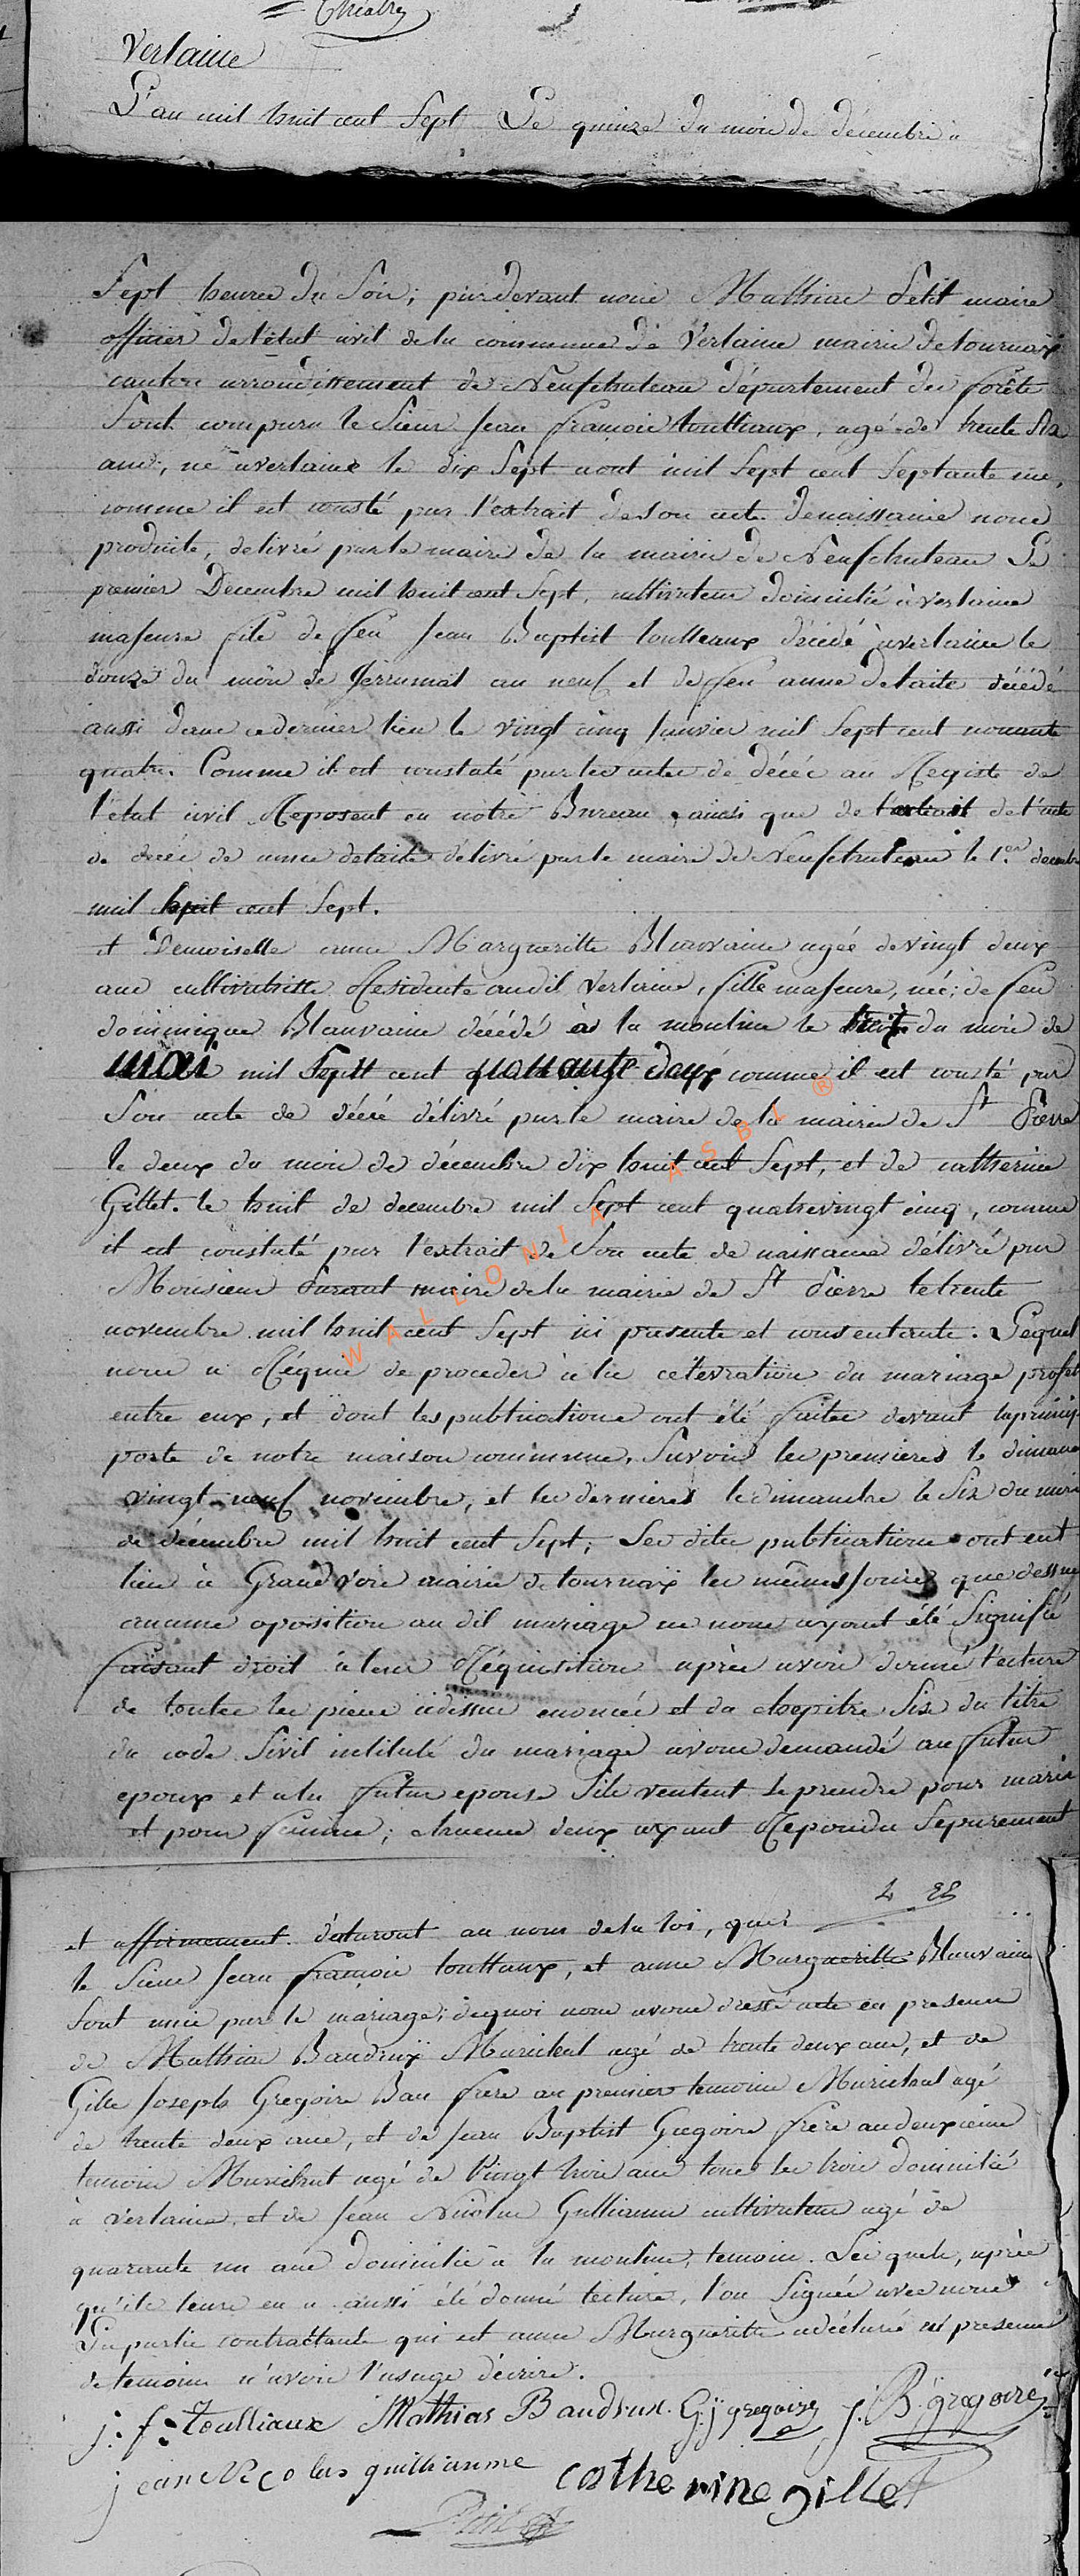 Verlaine
L'an mil huit cent Sept Le quinze du mois de decembre a
Sept heures du Soir; pardevant nous Mathias Petit maire
officier de l'état civil de la commune de Verlaine mairie de tournaÿ
canton arrondissement de Neufchateau département des forêts
Sont comparu le Sieur Jean françois toulliaux, agé de trente Six
ans, né a verlaine le dix Sept aout mil Sept cent Septante un,
comme il est consté par l'extrait de son acte de naissance nous
produite, delivré par le maire de la mairie de Neufchateau Le
premier Decembre mil huit cent Sept, cultivateur domicilié à verlaine
majeure fils de feu Jean Baptist toulleaux décédé a verlaine le
douze du mois de Germinal an neuf et de feu anne detaite décédé
aussi dans ce dernier lieu le vingt cinq Janvier mil Sept cent nonante
quatre. Comme il est constaté par les actes de décés au Registe de
l'état civil Reposent en notre Bureau, ainsi que de l'extrait de l'acte
de decés de anne detaite délivré par le maire de Neufchateau le 1er decembre
mil huit cent Sept.
et Demoiselle anne Margueritte Blauvaine agée de vingt deux
ans cultivatrisse Residente audit Verlaine, fille majeure, née; de feu
dominique Blauvaine décédé à la mouline le huit du mois de
mai mil Septt cent nonante deux comme il est consté par
Son acte de décés délivré par le maire de la mairie de St Pierre
le deux du mois de décembre dix huit cent Sept, et de catherine
Gillet. le huit de decembre mil Sept cent quatrevingt cinq, comme
il est constaté par l'extrait de Son acte de naissance délivré par
Monsieur maire de la mairie de St Pierre le trente
novembre mil huit cent Sept ici presente et consentante. Lequel
nous a Réquis de proceder à la celevration du mariage projet
entre eux, et dont les publications ont été faites devant la princip
porte de notre maison commune, Savoir les premieres le dimanc
vingt-neuf novembre, et les dernieres le dimanche le Six du mois
de décembre mil huit cent Sept; Les dites publications ont eut
lieu à Grandvoir mairie de tournaÿ les mêmes jours que dessus
aucune oposition au dit mariage ne nous ayant été Signifié
faisant droit à leur Réquisition après avoir donné lecture
de toutes les pieces cidessus enoncés et du chepitre Six du titre
du code Sivil intitulé du mariage avons demandé au futur
epoux et a la futur epouse Sils veulent Se prendre pour marie
et pour femme; chacune deux ayant Repondu Separement
et affirmement. declaront au nom de la loi, que
le Sieur Jean françois toullaux, et anne Margueritte Blauvaine
Sont unie par le mariage; dequoi nous avons dressé acte en presence
de Mathias Baudruÿ Marichal agé de trente deux ans, et de
Gille Joseph Gregoire Bau frere au premier temoins Marichal agé
de trente deux ans, et de Jean Baptist Gregoire frère au deuxieme
temoin Marichal agé de Vingt trois ans tous les trois domicilié
à Verlaine, et de Jean Nicolas Gulliaume cultivateur agé de
quarante un ans domicilié à la mouline, temoin. Lesquels, après
qu'ils leurs en a aussi été donné lecture, l'on Signée avec nous
La partie contractante qui est anne Margueritte a déclaré en presence
de temoins n'avoir l'usage décrire.
j: f: toulliaux Mathias Baudrux. G: j gregoire j: B: gregoire
jean Nicolas guilliaume catherine gillet
Petit